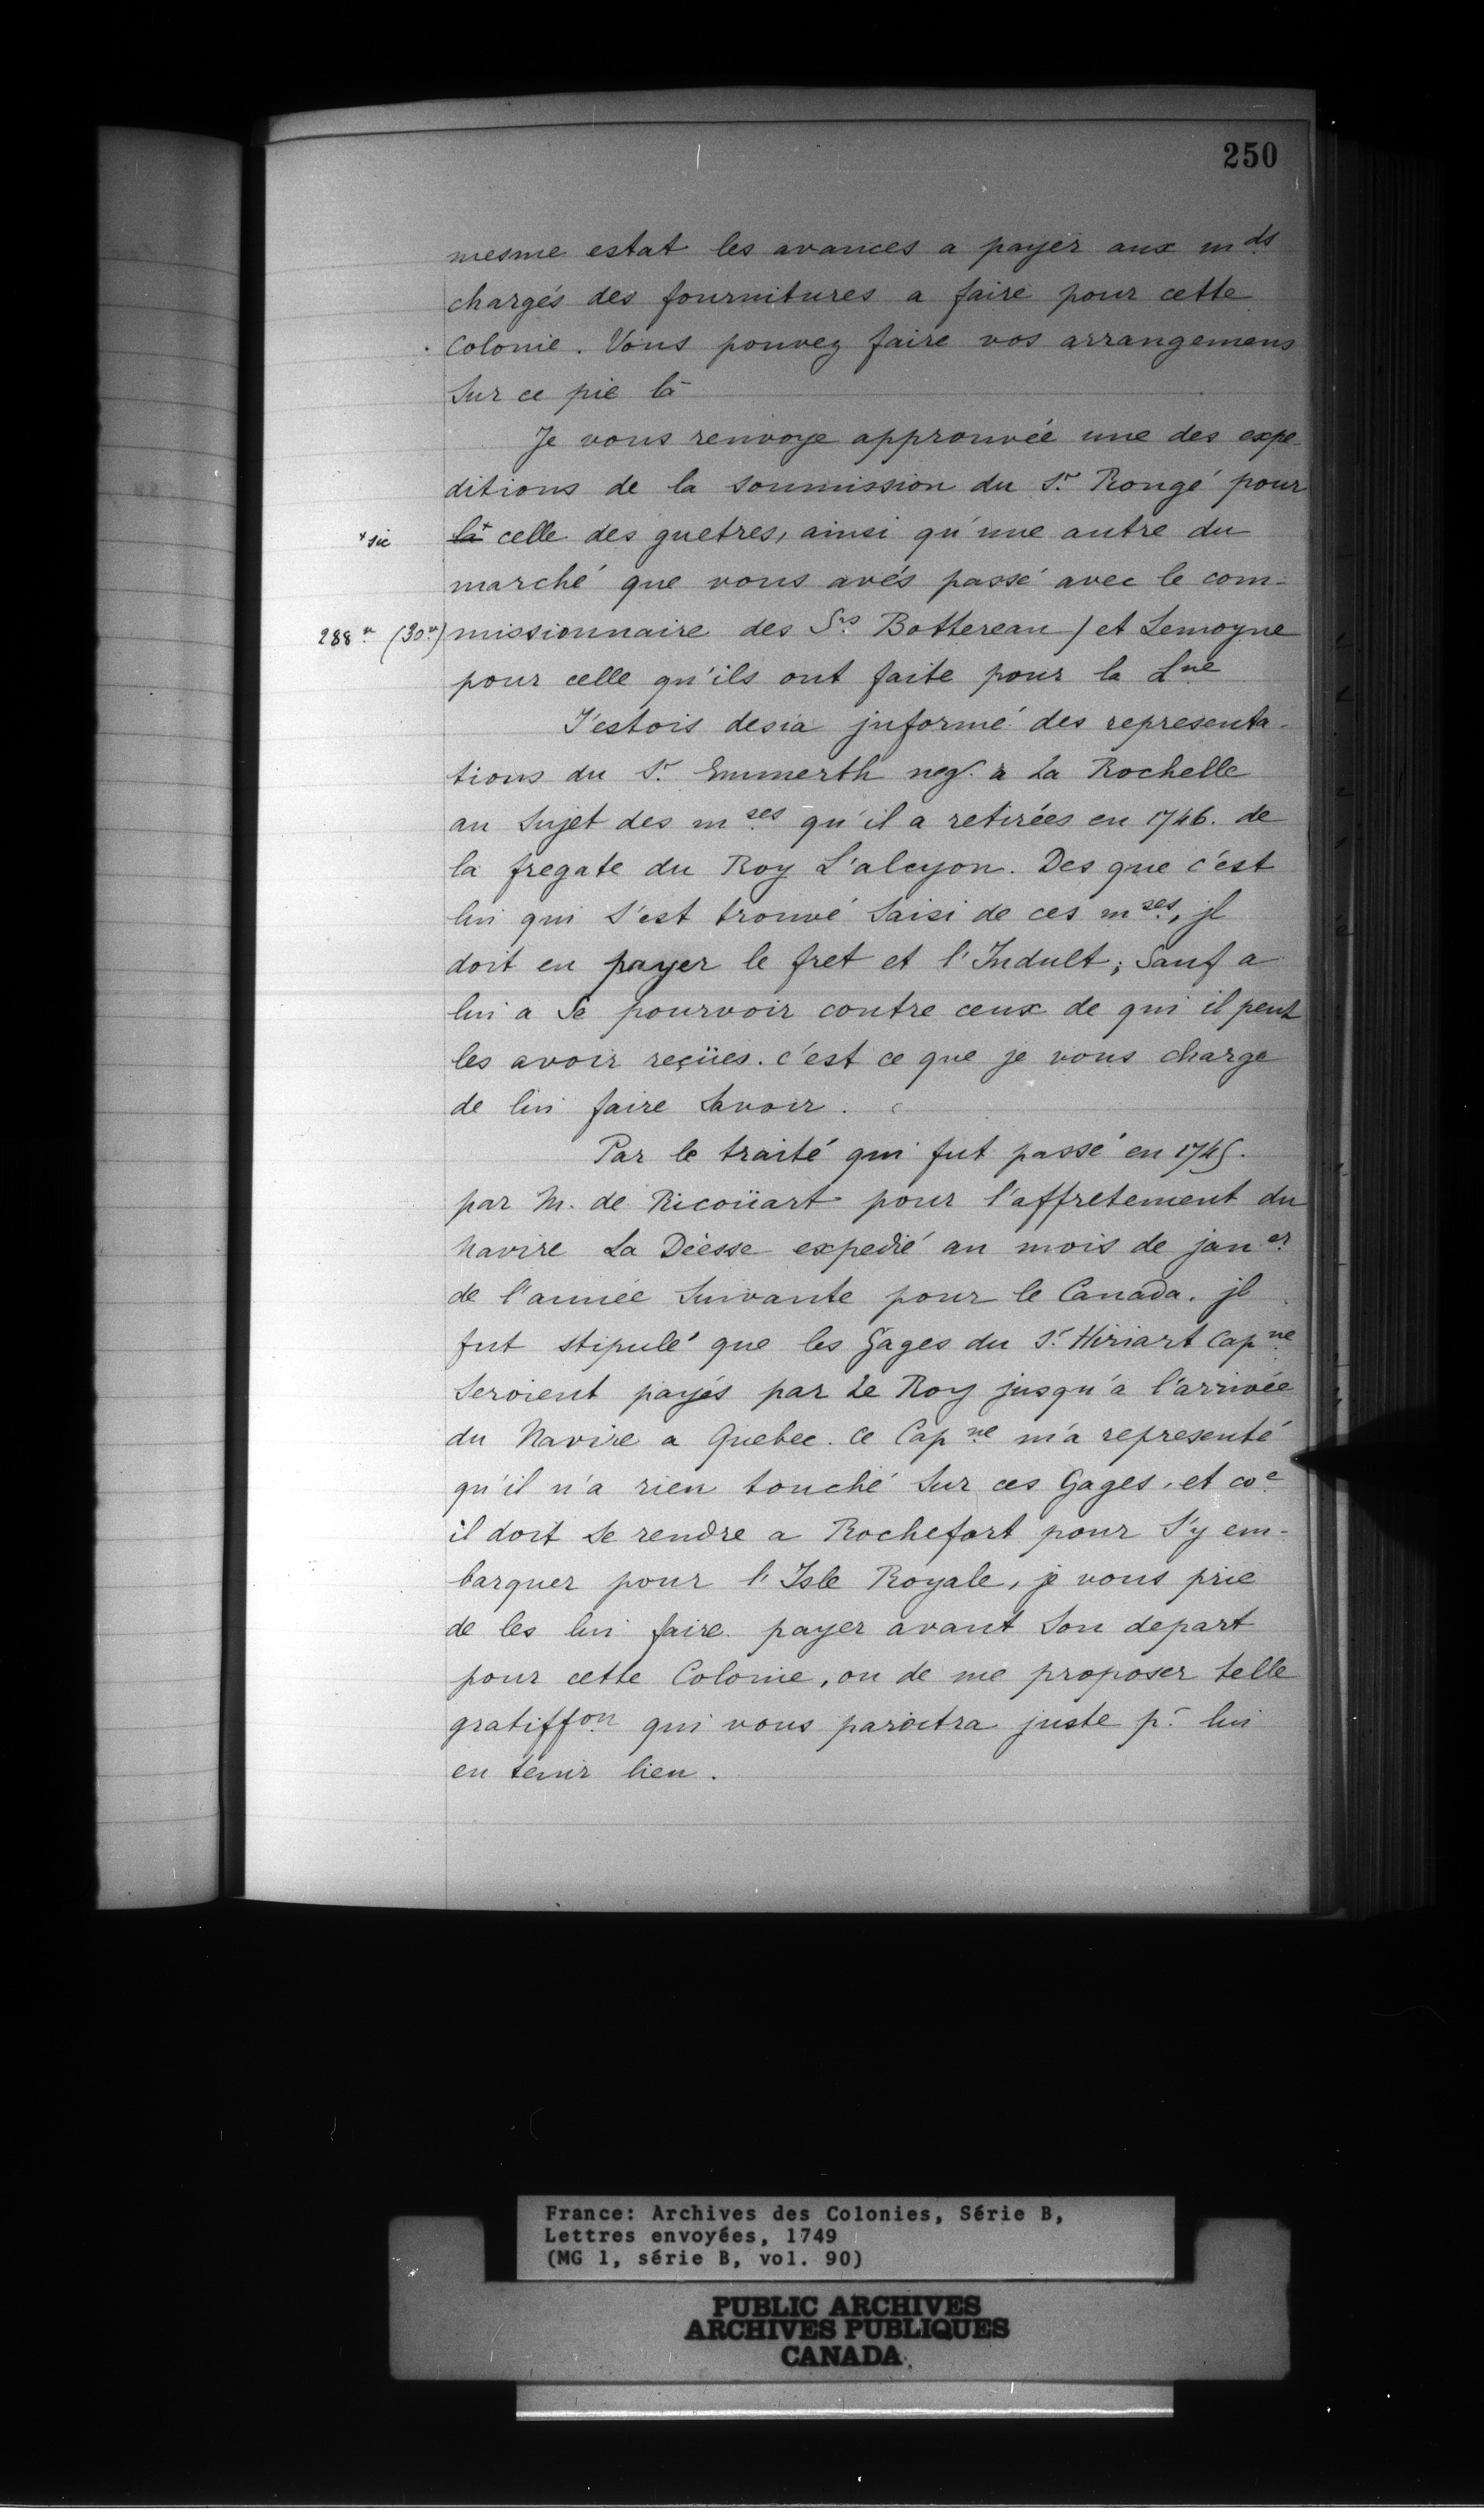 250
mesme estat les avances a payer aux mds
chargés des fournitures a faire pour cette
Colonie. Vous pouvez faire vos arrangemens
Sur ce pie là
Je vous renvoye approuvée une des expe-
ditions de la Soumission du Sr. Rougé pour
*sic la* celle des guetres, ainsi qu'une autre du
marché que vous avés passé avec le com-
288 (30) missionnaire des Srs Bottereau / et Lemoyne
pour celle qu'ils ont faite pour la Lne
J'estois desia jnformé des representa-
tions du Sr. Emmerth negt. a La Rochelle
au Sujet des mses qu'il a retirées en 1746. de
la fregate du Roy L'alcyon. Des que c'est
lui qui s'est trouvé Saisi de ces mses, jl
doit en payer le fret et l'Indult; Sauf a
lui a Se pourvoir contre ceux de qui il peut
les avoir reçües. c'est ce que je vous charge
de lui faire Savoir.
Par le traité qui fut passé en 1745.
par M. de Ricoüart pour l'affretement du
Navire La Déesse expedié au mois de janer
de l'année Suivante pour le Canada. jl
fut stipulé que les Gages du Sr. Hiriart Capne
Seroient payés par Le Roy jusqu'a l'arrivée
du Navire a Quebec. Ce Capne m'a representé
qu'il n'a rien touché Sur ces Gages. et coe
il doit Se rendre a Rochefort pour S'y em-
barquer pour l'Isle Royale, je vous prie
de les lui faire payer avant Son depart
pour cette Colonie, ou de me proposer telle
gratiffon qui vous paroitra juste pr lui
en tenir lieu.
France: Archives des Colonies, Série B,
Lettres envoyées, 1749
(MG 1, série B, vol. 90)
PUBLIC ARCHIVES
ARCHIVES PUBLIQUES
CANADA